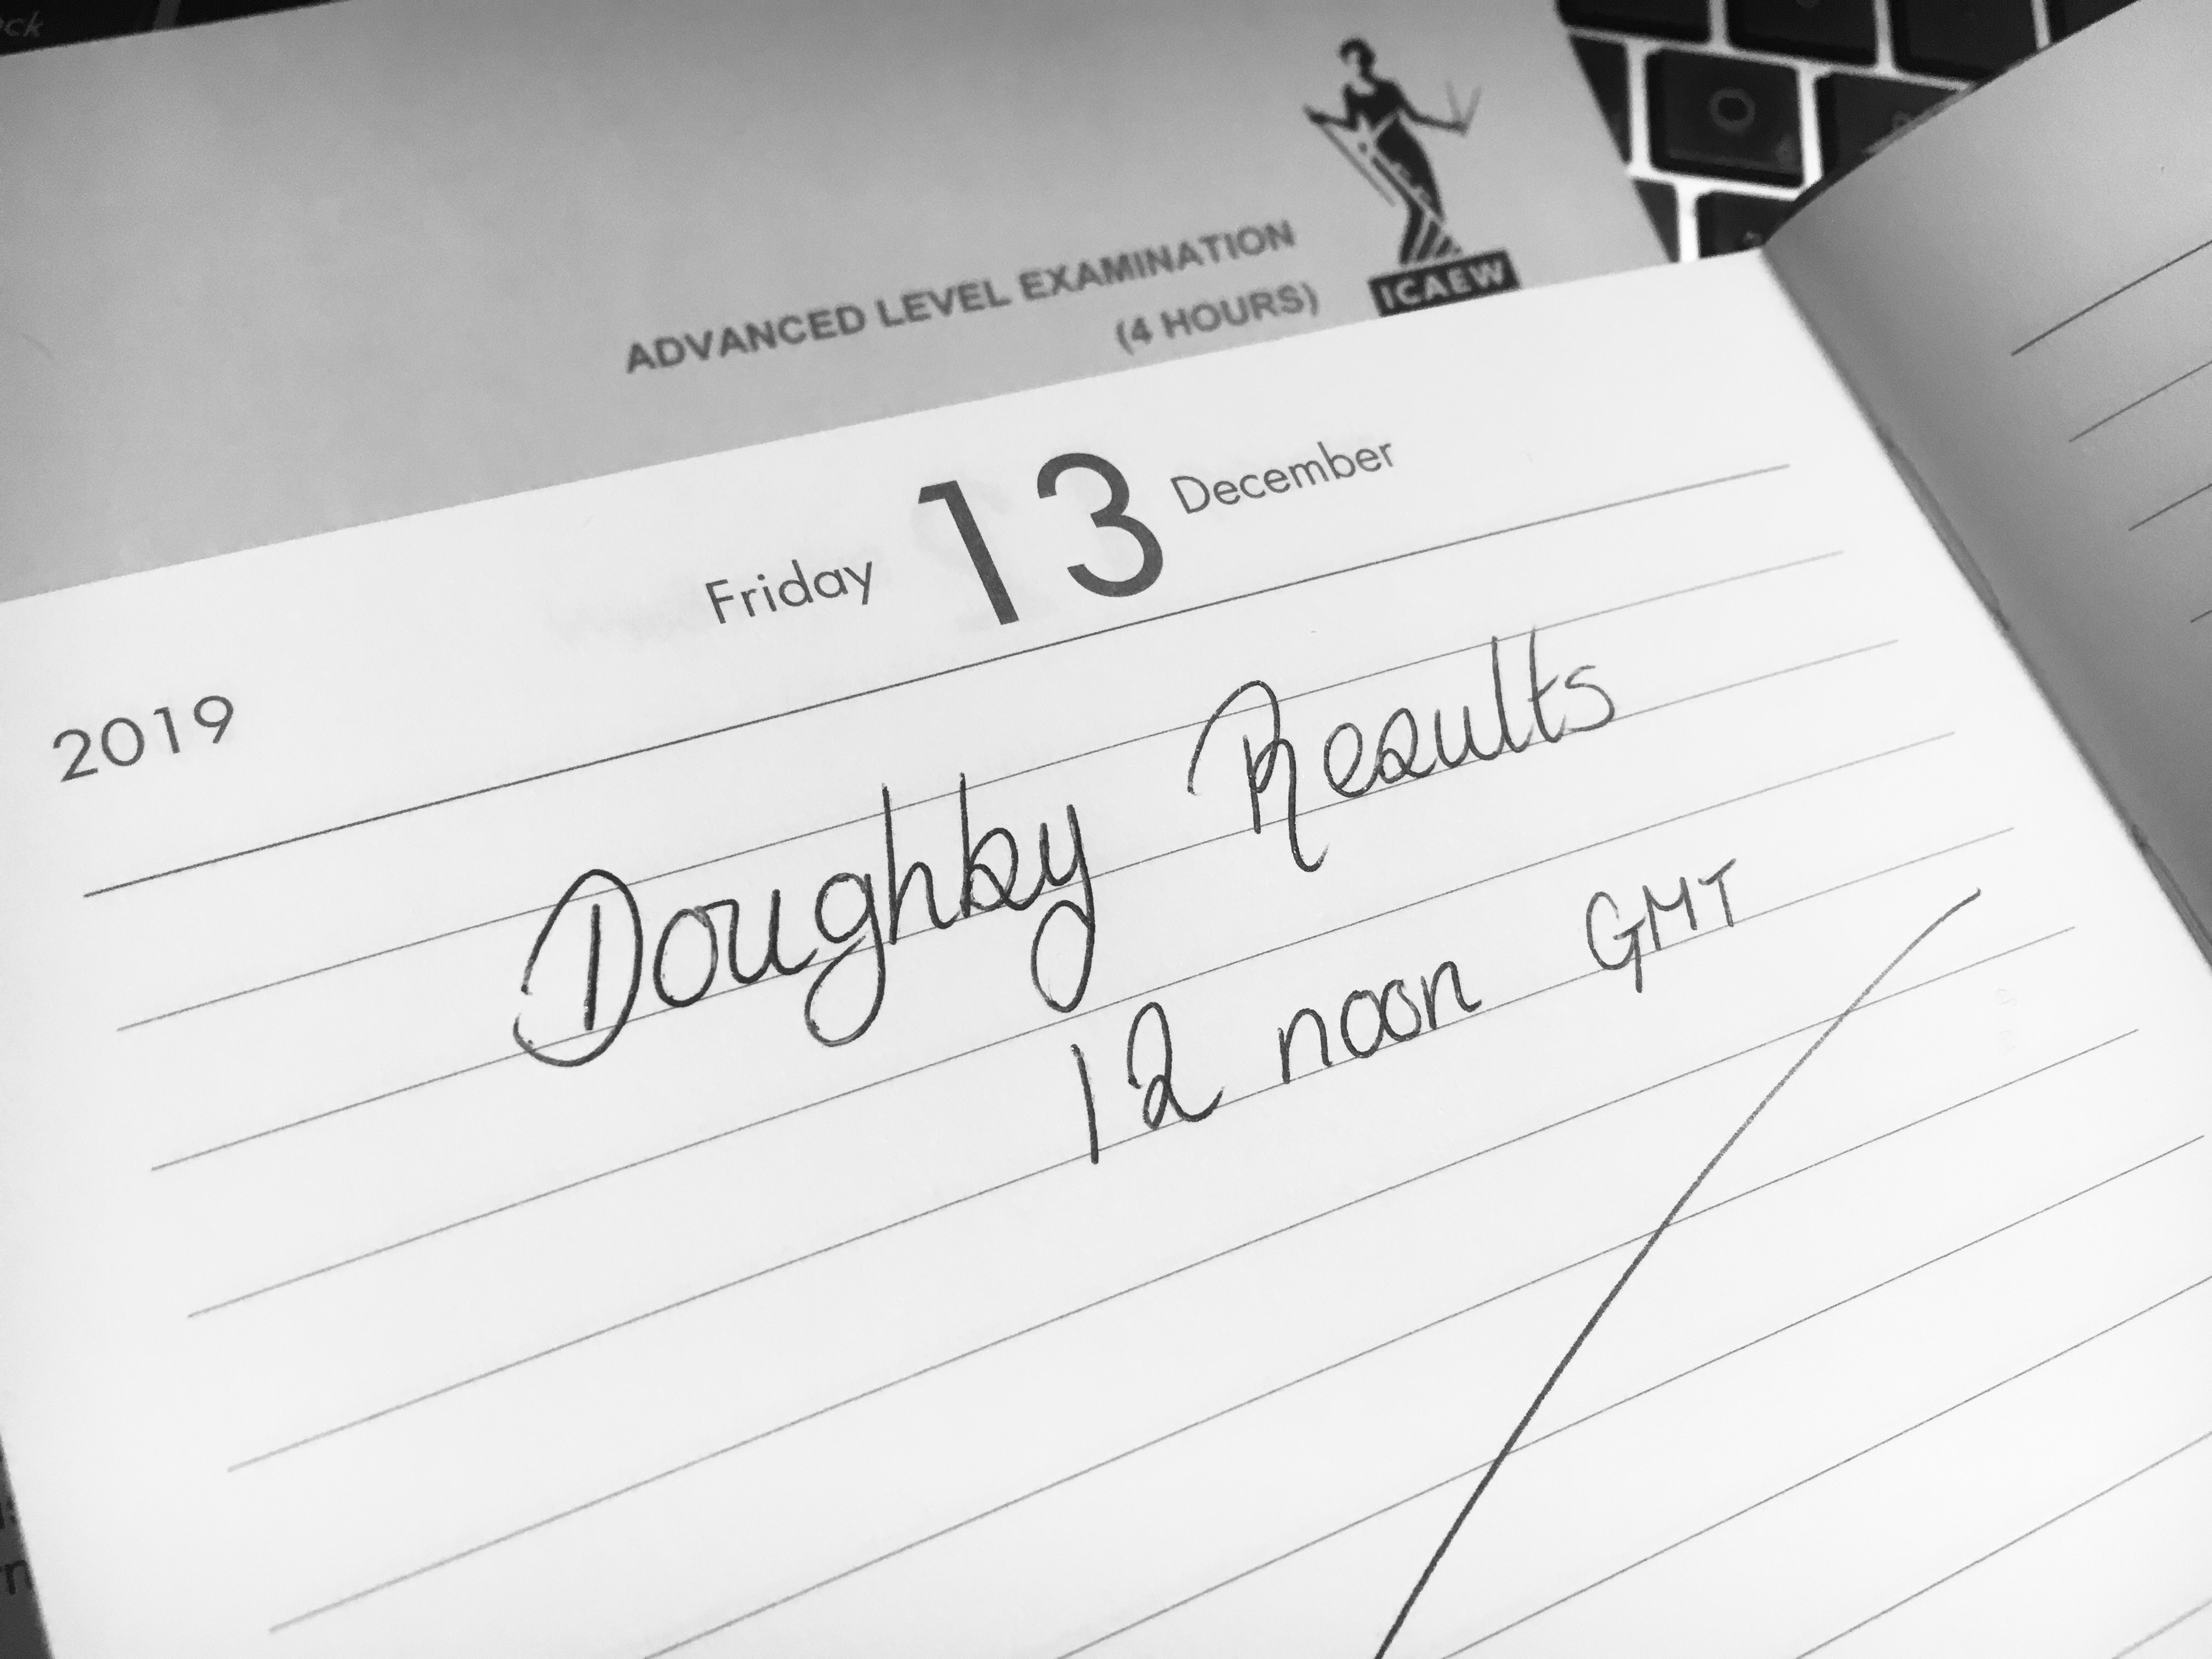 ck
ADVANCED LEVEL EXAMINATION
(4 HOURS)
ICAEW
Friday 13 December
2019
Doughby Results
12 noon GMT